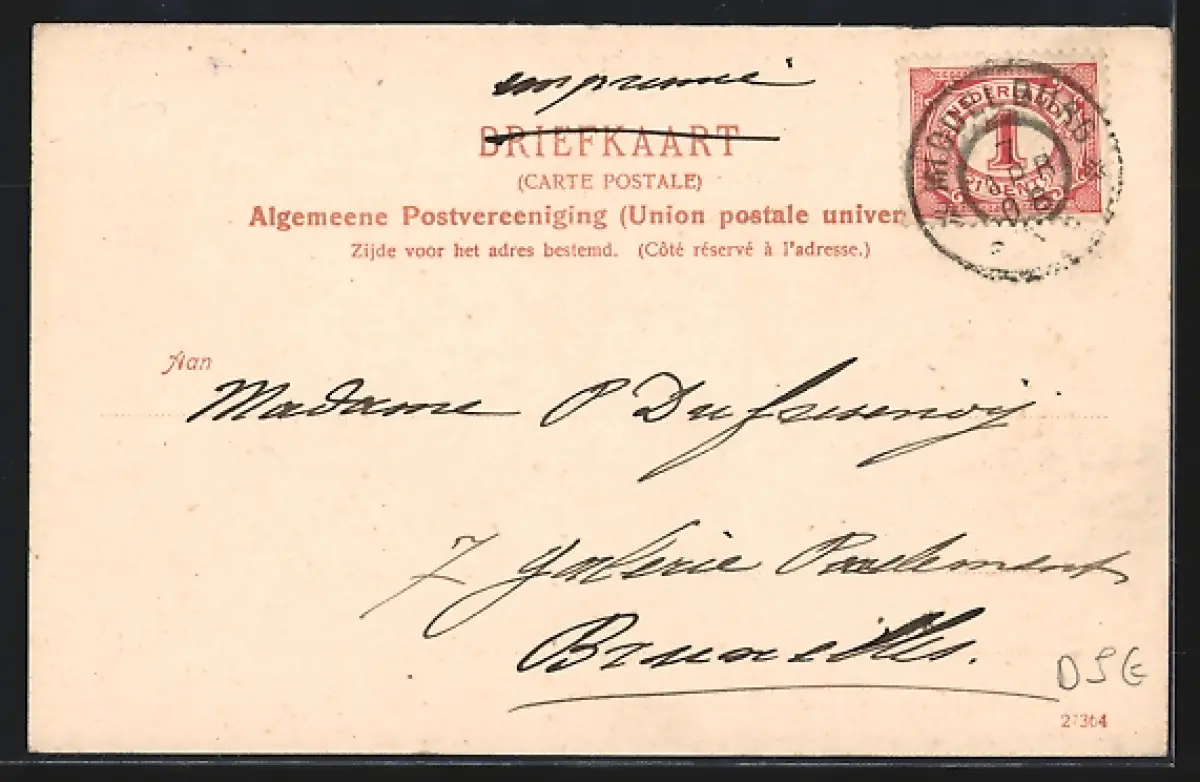 imprimé
BRIEFKAART
(CARTE POSTALE)
Algemeene Postvereeniging (Union postale univer
Zijde voor het adres bestemd. (Côté réservé à l'adresse.)
NEDERLAND
1
CENT
APR
Aan
Madame P
7 Galerie Parlement
Bruxelles.
DSG